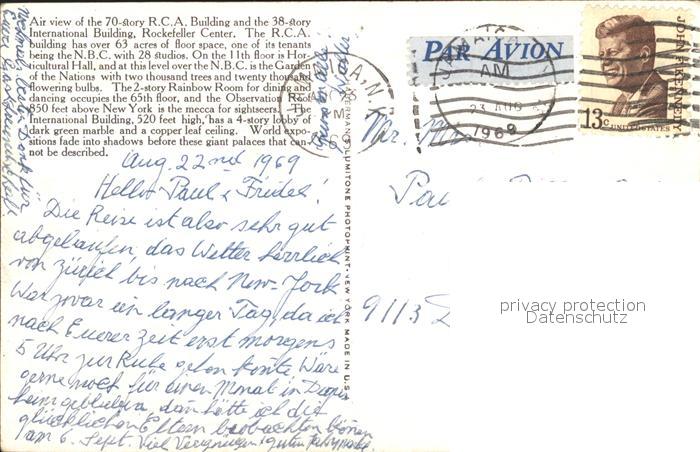 Air view of the 70-story R.C.A. Building and the 38-story
International Building, Rockefeller Center. The R.C.A.
building has over 63 acres of floor space, one of its tenants
being the N.B.C. with 28 studios. On the 11th floor is Hor-
ticultural Hall, and at this level over the N.B.C. is the Garden
of the Nations with two thousand trees and twenty thousand
flowering bulbs. The 2-story Rainbow Room for dining and
dancing occupies the 65th floor, and the Observation Roof
850 feet above New York is the mecca for sightseers. The
International Building, 520 feet high, has a 4-story lobby of
dark green marble and a copper leaf ceiling. World expo-
sitions fade into shadows before these giant palaces that can-
not be described.
Aug. 22nd 1969
Hello Paul & Friedel!
Die Reise ist also sehr gut
abgelaufen, das Wetter herrlich
von Zürich bis nach New-York
War zwar ein langer Tag, da ich
nach Euerer Zeit erst morgens
5 Uhr zur Ruhe gehen konnte Wäre
gerne noch für einen Monat in
heimgeblieben, dan hätte ich die
glücklichen Eltern beobachten können
am 6. Sept. Viel Vergnügen & guten
Nochmals vielen Dank für
Eure Gastfreundschaft
PAR AVION
AM
23 AUG
1969
JOHN F. KENNEDY
13c UNITED STATES
Mr. Mrs
Pau
9113
LUMITONE PHOTOPRINT - NEW YORK MADE IN U.S.
privacy protection
Datenschutz